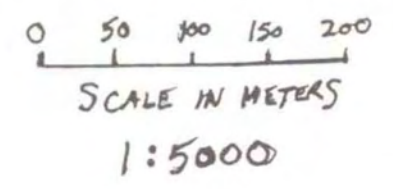 0 50 100 150 200
SCALE IN METERS
1:5000